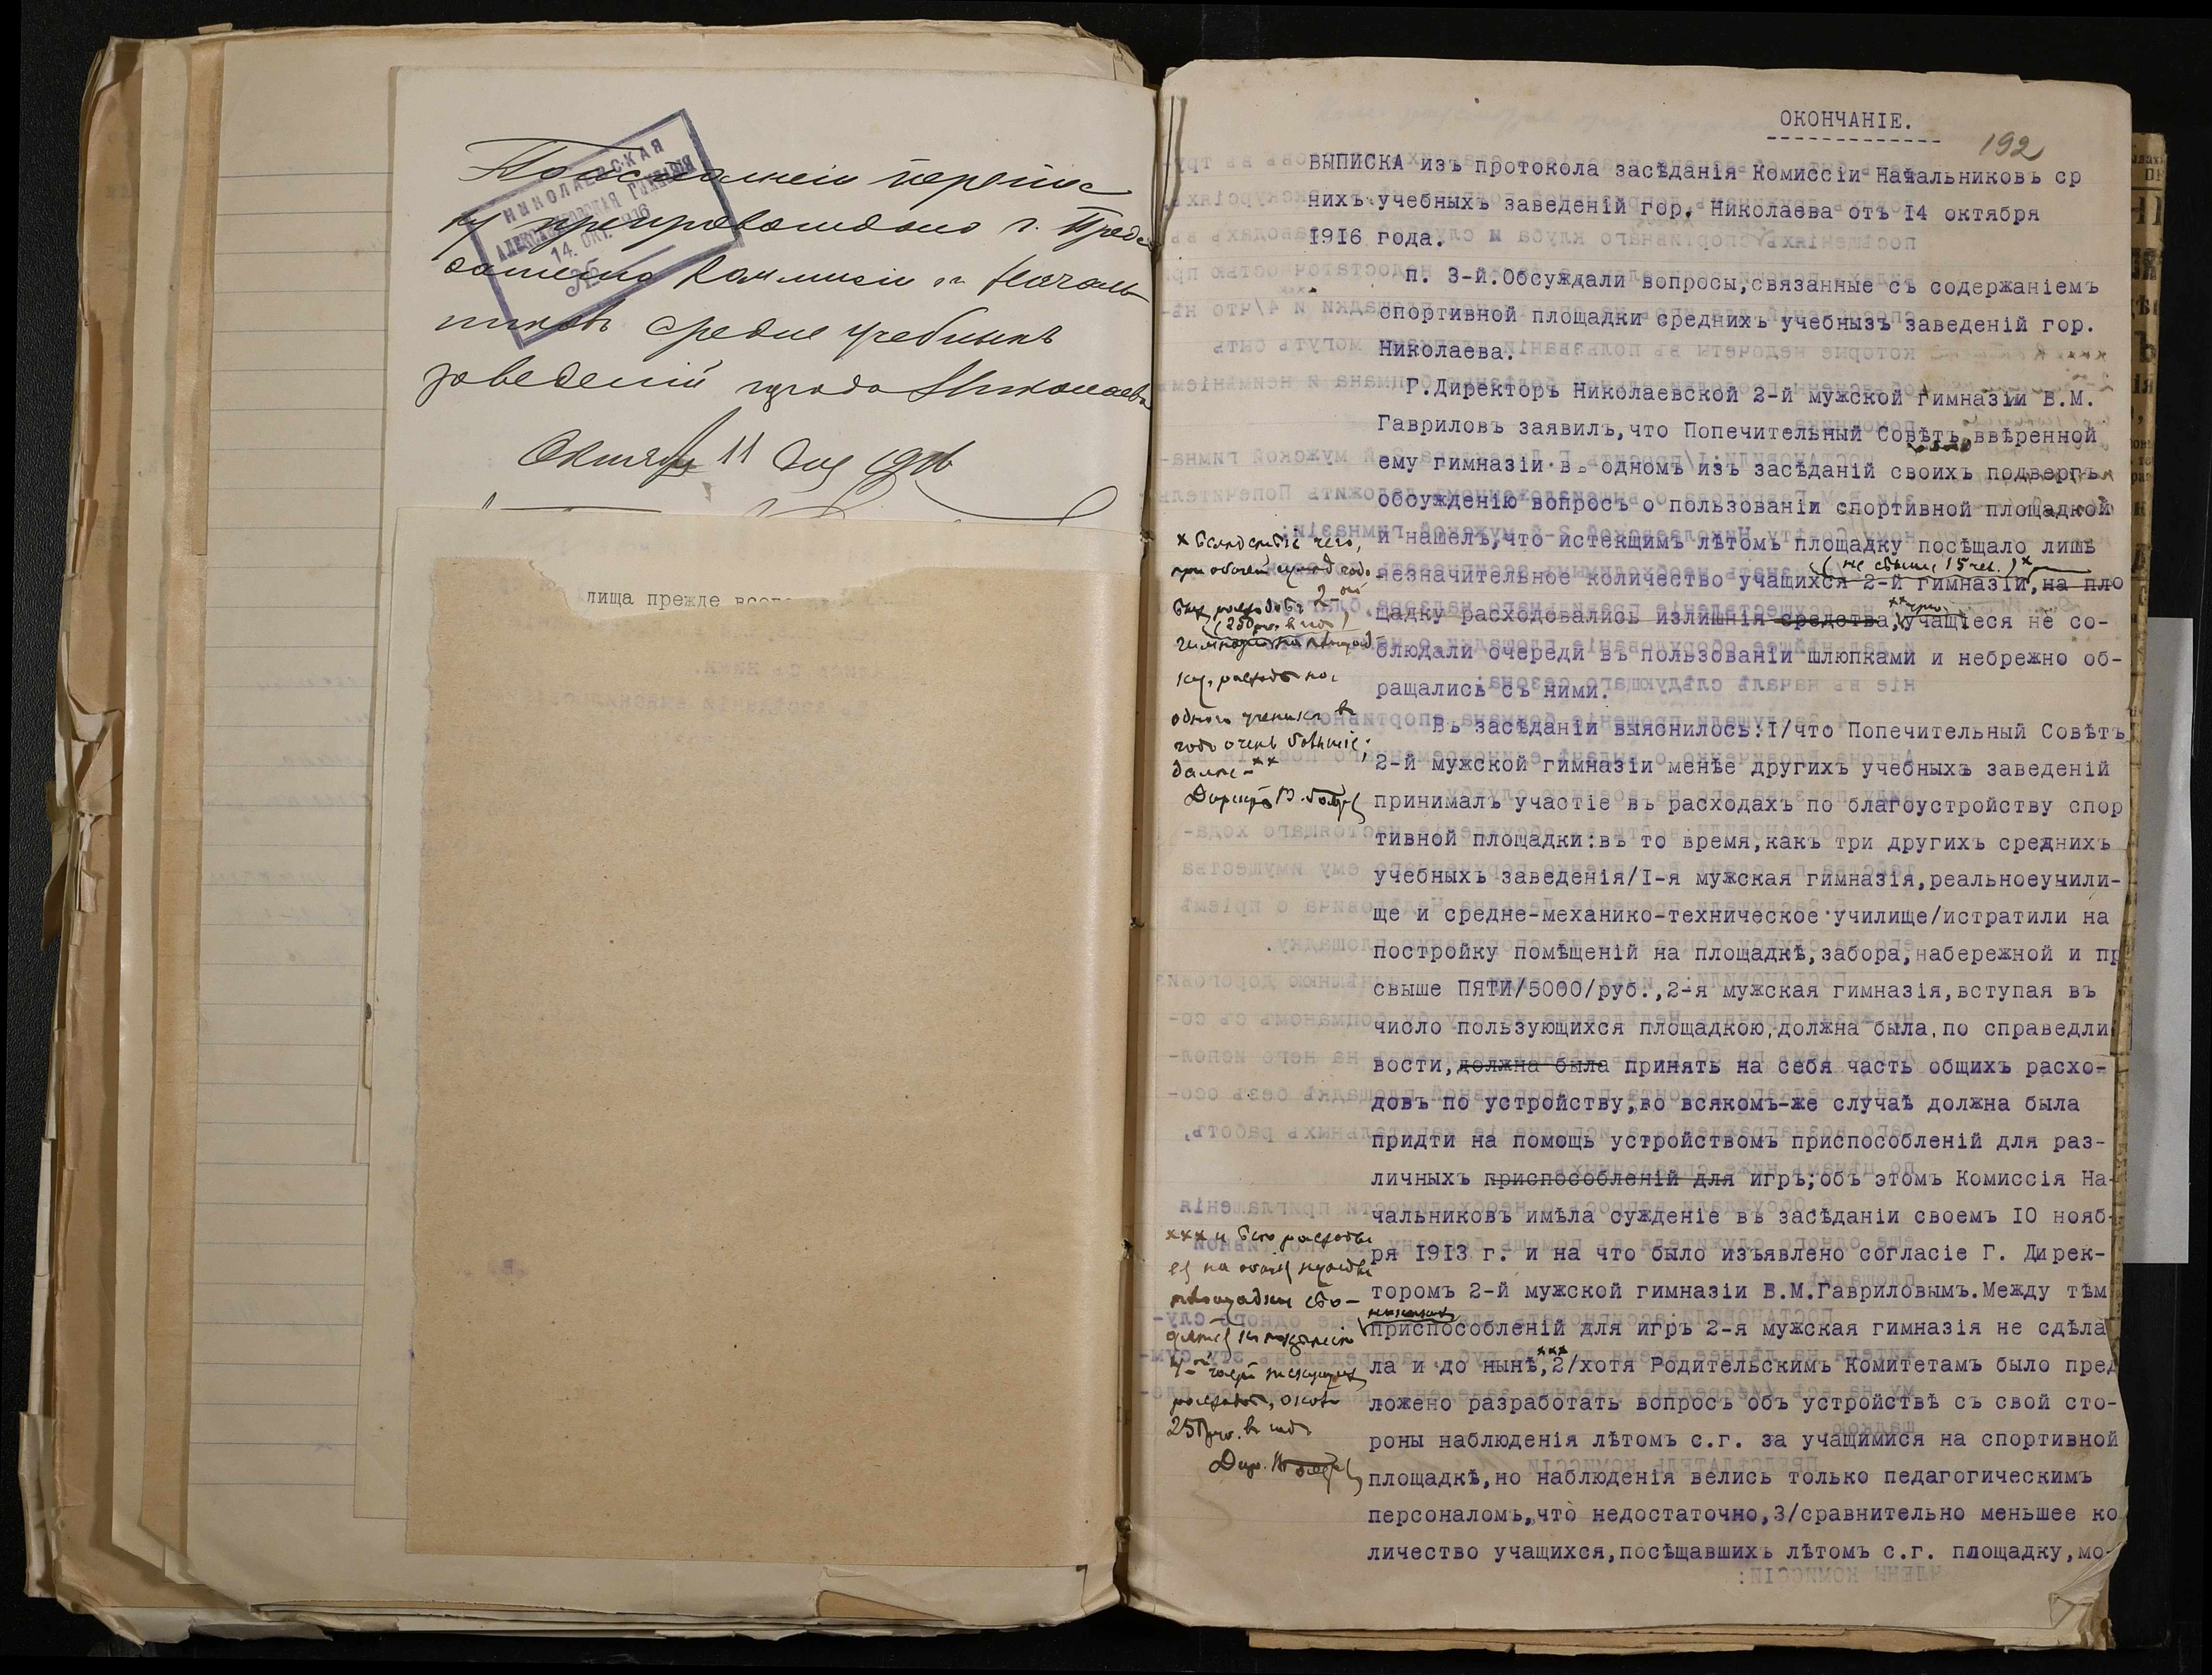 НИКОЛАЕВСКАЯ
14. ОКТ. 1916
№
препровождаю г. Предсе
дателю Коммисіи г.г. Началь
никовъ средне учебныхъ
заведеній города Николаева
Октября 11 дня 1916
лища прежде всего
ОКОНЧАНІЕ.
192
ВЫПИСКА изъ протокола засѣданія Комиссіи Начальниковъ ср
нихъ учебныхъ заведеній гор. Николаева отъ I4 октября
I9I6 года.
п. 3-й.Обсуждали вопросы,связанные съ содержаніемъ
спортивной площадки среднихъ учебнызъ заведеній гор.
Николаева.
Г.Директоръ Николаевской 2-й мужской гимназіи В.М.
Гавриловъ заявилъ,что Попечительный Совѣтъ ввѣренной
ему гимназіи въ одномъ изъ засѣданій своихъ подвергъ
обсужденію вопросъ о пользованіи спортивной площадкой
и нашелъ,что истекщимъ лѣтомъ площадку посѣщало лишь
(не свыше 15 чел.)*
незначительное количество учащихся 2-й гимназіи,на пло
щадку расходовались излишнія средства,учащіеся не со-
блюдали очереди въ пользованіи шлюпками и небрежно об-
ращались съ ними.
* вслѣдствіе чего,
при общей
2-ой
(250 р. в год)
расходъ на
одного ученика въ
годъ очень большіе;
далѣе-**
Въ засѣданіи выяснилось:I/что Попечительный Совѣтъ
2-й мужской гимназіи менѣе другихъ учебныхъ заведеній
принималъ участіе въ расходахъ по благоустройству спор
тивной площадки:въ то время,какъ три другихъ среднихъ
учебныхъ заведенія/I-я мужская гимназія,реальноеучили-
ще и средне-механико-техническое училище/истратили на
постройку помѣщеній на площадкѣ,забора,набережной и пр
свыше ПЯТИ/5000/руб.,2-я мужская гимназія,вступая въ
число пользующихся площадкою,должна была,по справедли
вости,должна была принять на себя часть общихъ расхо-
довъ по устройству,во всякомъ-же случаѣ должна была
придти на помощь устройствомъ приспособленій для раз-
личныхъ приспособленій для игръ;объ этомъ Комиссія На-
чальниковъ имѣла сужденіе въ засѣданіи своемъ I0 нояб-
ря I9I3 г. и на что было изъявлено согласіе Г. Дирек-
торомъ 2-й мужской гимназіи В.М.Гавриловымъ.Между тѣм
никакихъ
приспособленій для игръ 2-я мужская гимназія не сдѣла
ла и до нынѣ,***2/хотя Родительскимъ Комитетамъ было пред
ложено разработать вопросъ объ устройствѣ съ свой сто-
роны наблюденія лѣтомъ с.г. за учащимися на спортивной
площадкѣ,но наблюденія велись только педагогическимъ
персоналомъ,что недостаточно,3/сравнительно меньшее ко
личество учащихся,посѣщавшихъ лѣтомъ с.г. площадку,мо-
*** и всѣ расходы
ея на общія нужды
площадки сво-
дятся къ
4-ой части текущихъ
расходовъ, около
250 р. въ годъ